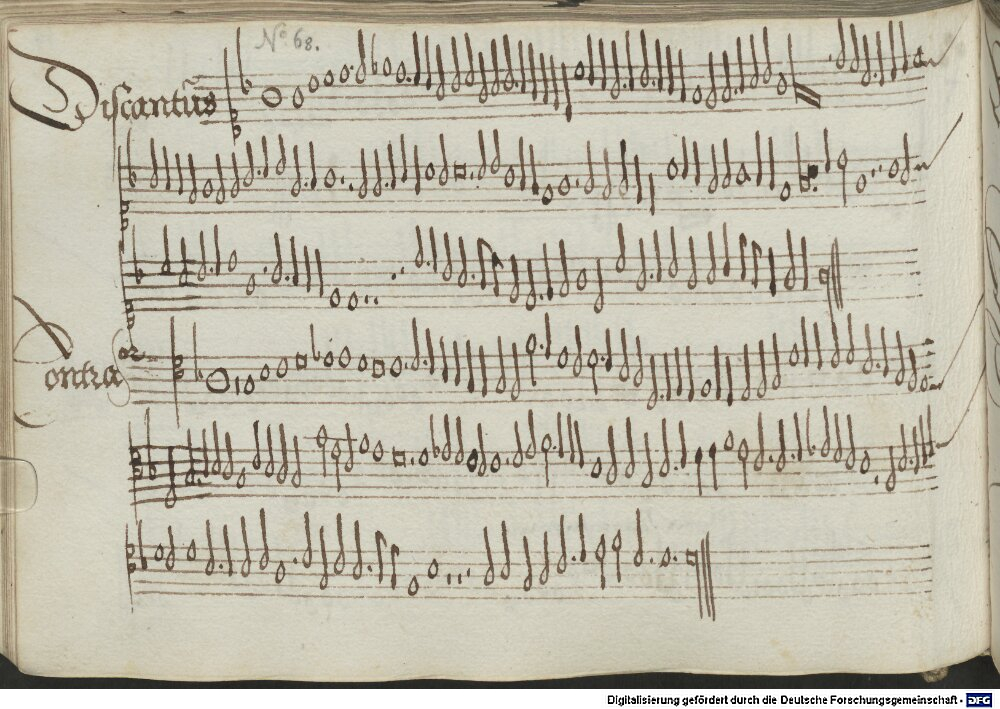 No 68.
Discantus
Contra
Digitalisierung gefördert durch die Deutsche Forschungsgemeinschaft - DFG